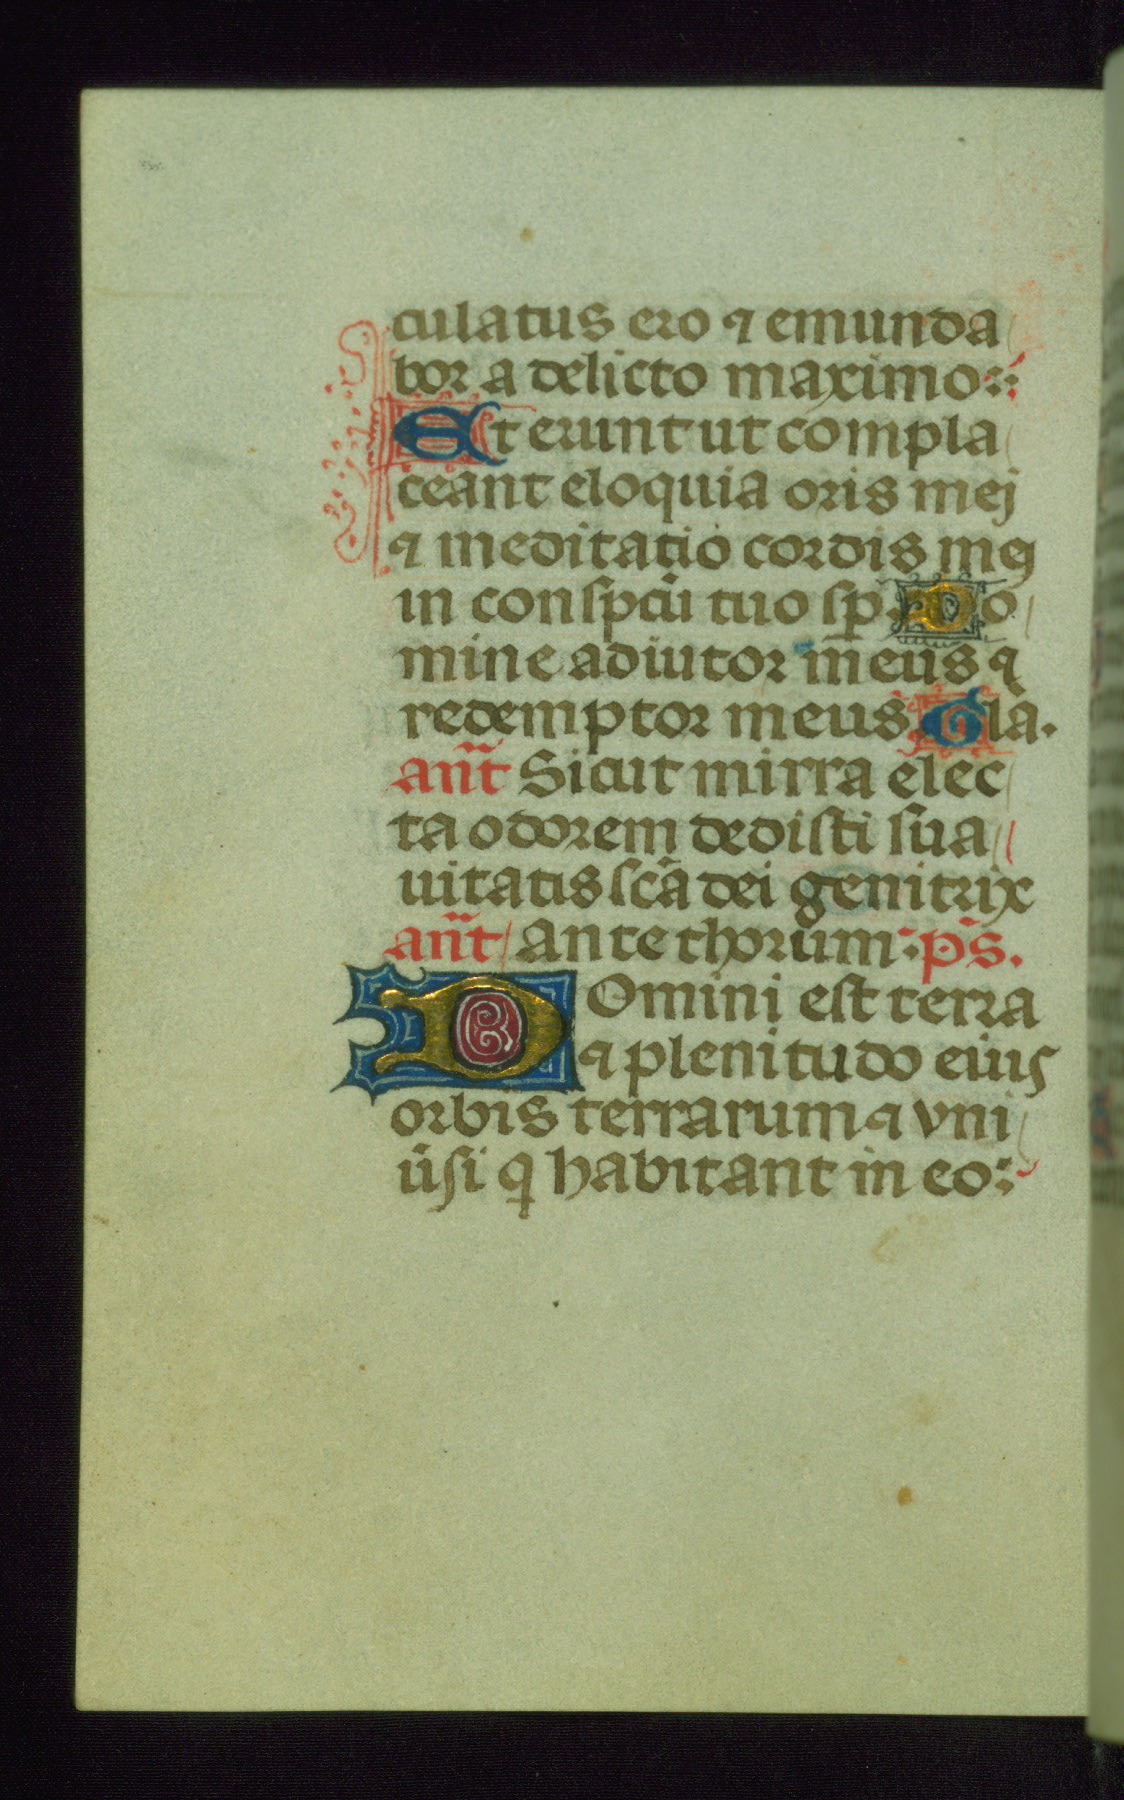 culatus ero ⁊ emunda
bor a delicto maximo:
Et erunt ut compla
ceant eloquia oris mej
⁊ meditatio cordis mej
in conspcũ tuo sp̱. Do
mine adiutor meus ⁊
redemptor meus. Glã.
añt Sicut mirra elec
ta odorem dedisti sua
uitatis scã dei genitrix
añt ante thorum: ps̃.
Domini est terra
⁊ plenitudo eius
orbis terrarum ⁊ vni
ũsi q̃ habitant in eo: